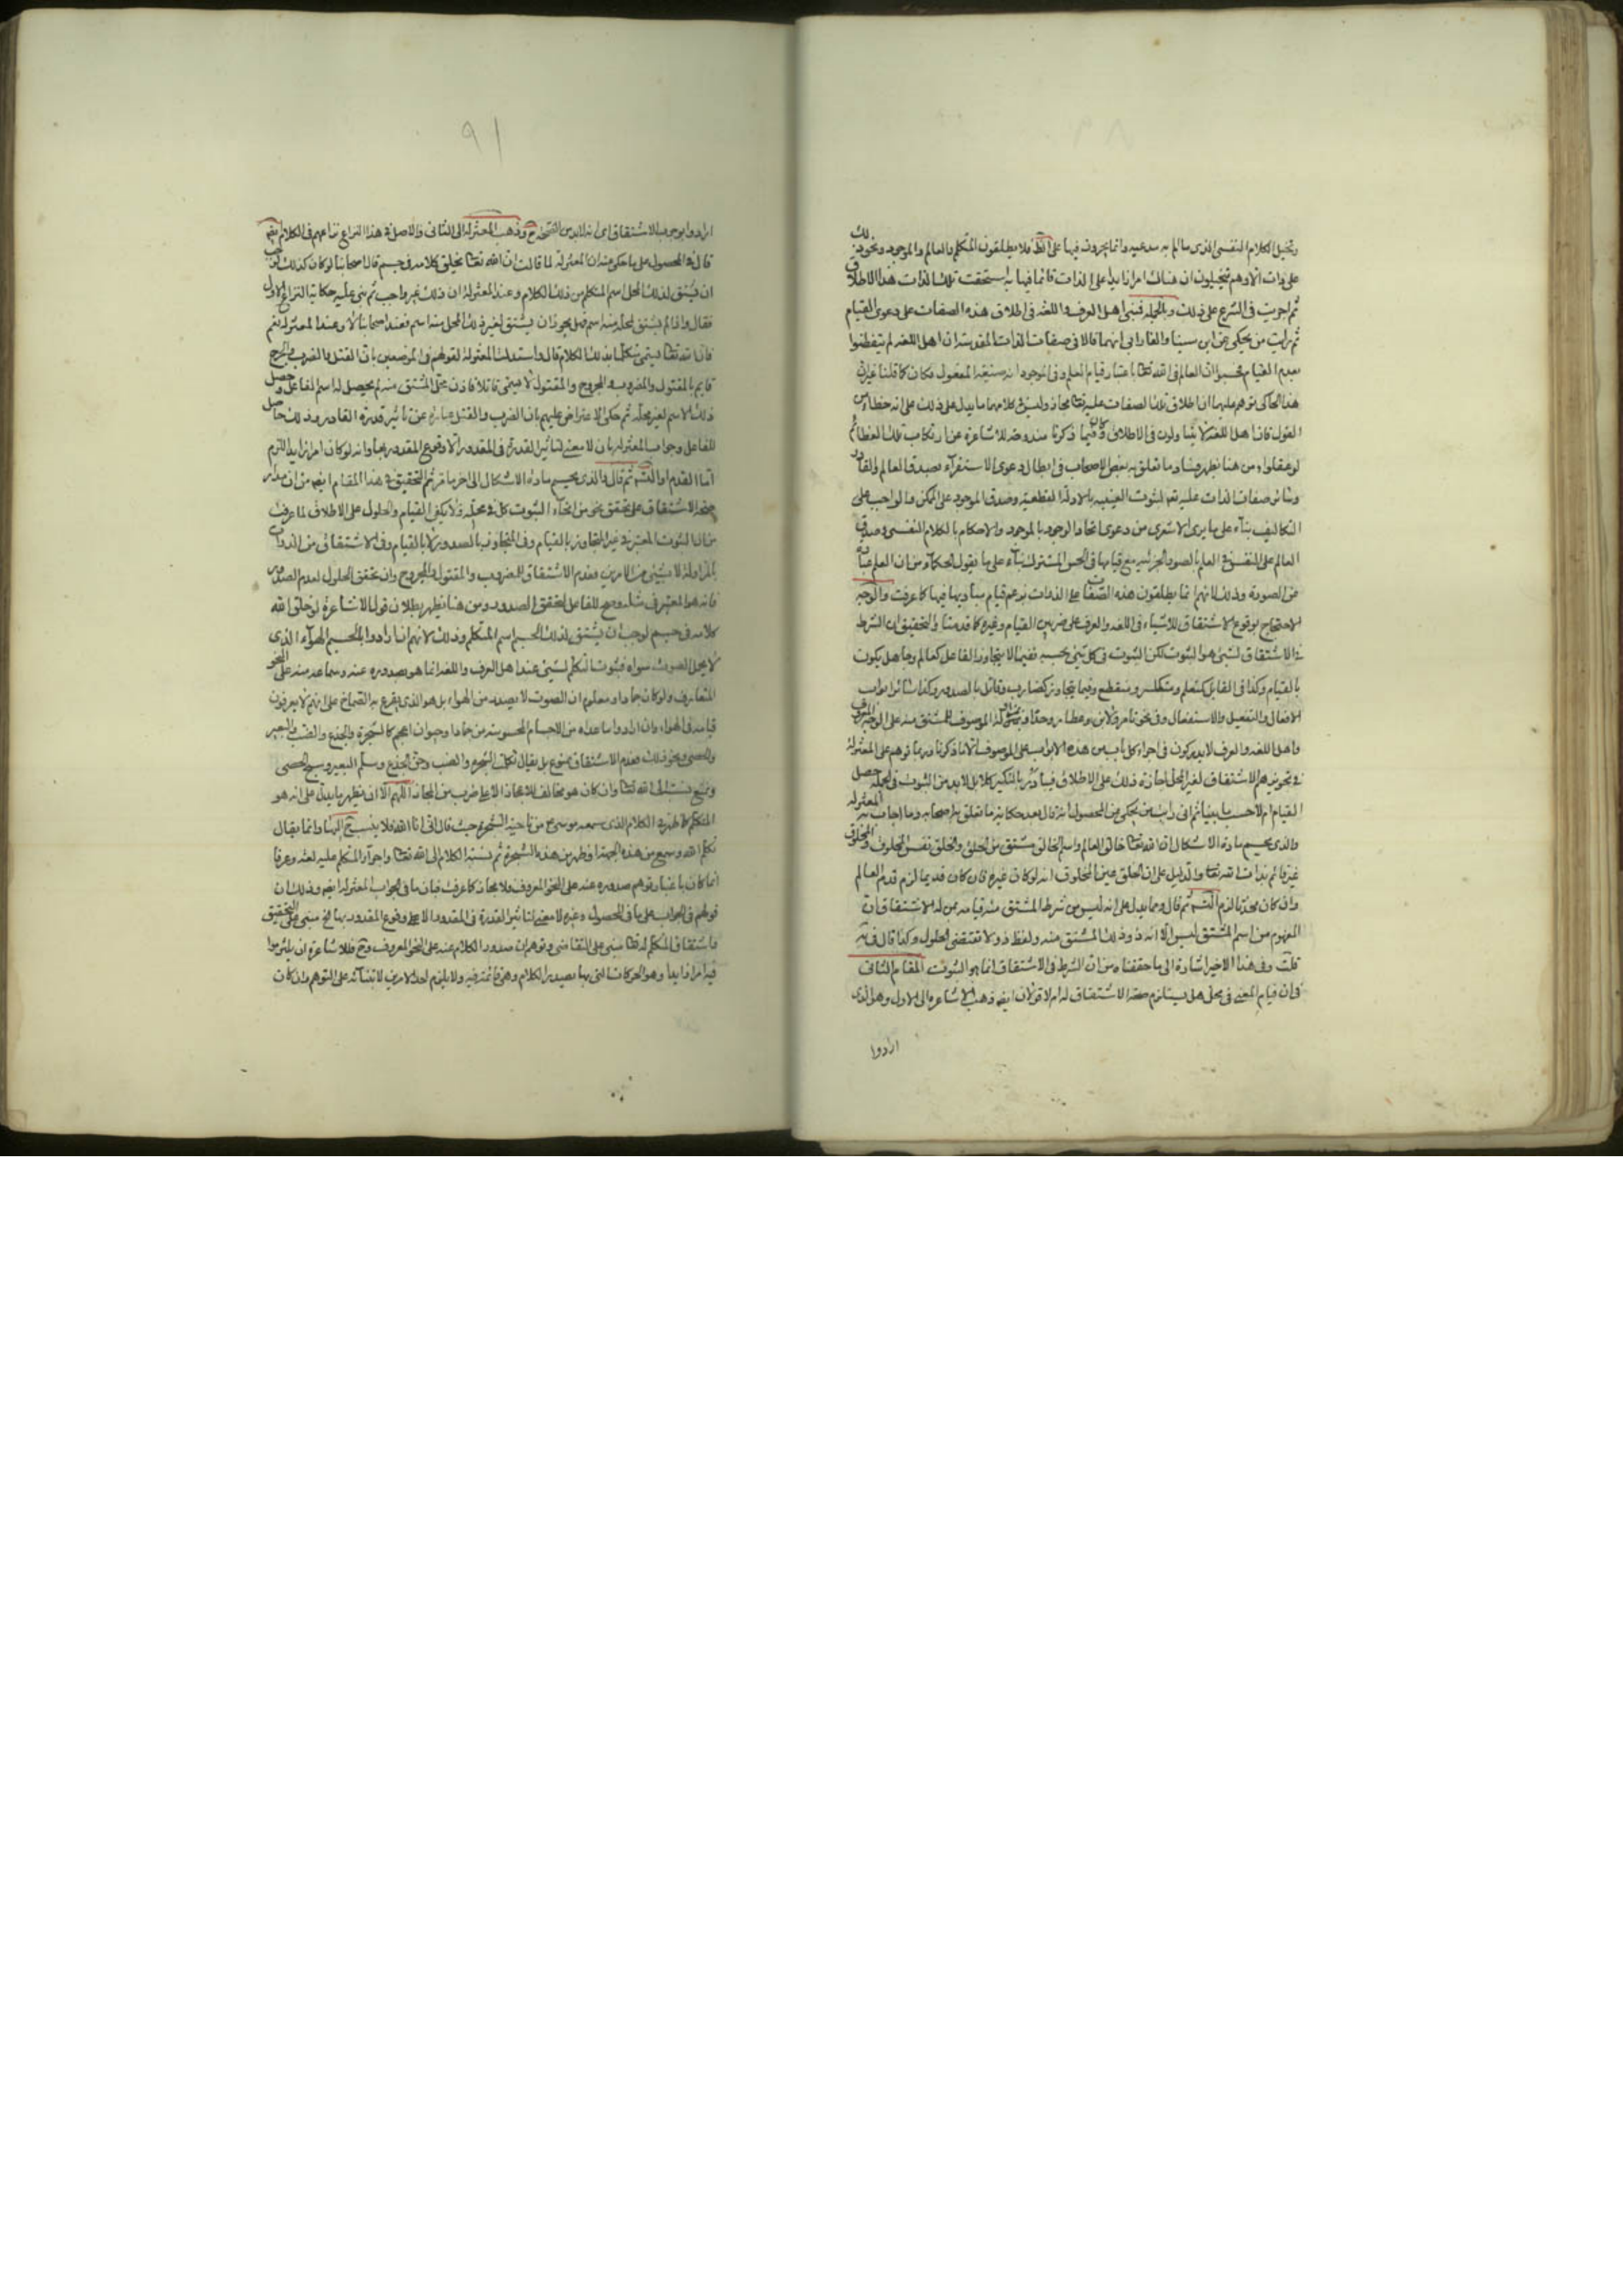 وتخيل الكلام النفسى الذى ما لم به مدعيه وانما يجرون فيها على الظ فلا يطلقون المتكلم والعالم والموجود ونحو ذلك
على ذات الا وهم يتخيلون ان هناك امرا زايدا على الذات قائما فيها به استحقت تلك الذات هذا الاطلاق
ثم اجريت فى الشرع على ذلك وبالجملة فبنى اهل العرف واللغه فى اطلاق هذه الصفات على دعوى القيام
ثم رايت من يحكى عن ابن سينا والفارابى انهما قالا فى صفات الذات المقدسة ان اهل اللغه لم يتفطنوا
بعدم القيام فحسبوا ان العالم فى الله تعالى باعتبار قيام العلم وفى الموجود انه صيغة المفعول فكان كما قلنا غير ان
هذا الحاكى توهم عليهما ان اطلاق تلك الصفات عليه تعالى مجاز وليس فى كلامهما ما يدل على ذلك على انه خطاء من
القول فان اهل اللغة لا يتاولون فى الاطلاق وكان فيما ذكرنا مندوحة للاشاعرة عن ارتكاب تلك العظائم
لو عقلوا ومن هنا يظهر فساد ما تعلق به بعض الاصحاب فى ابطال دعوى الاستقراء بصدق العالم والقادر
وسائر صفات الذات عليه تعالى لثبوت العينيه بالادلة القطعية وصدق الموجود على الممكن والواجب على
التكاليف بناء على ما يرى الاشعرى من دعوى اتحاد الوجود بالموجود والاحكام بالكلام النفسى وصدق
العالم على النفس فى العلم بالصور الجزئيه مع قيامها فى الحس المشترك بناء على ما يقول الحكماء من ان العلم عبارة
عن الصورة وذلك لانهم انما يطلقون هذه الصفات على الذات بزعم قيام مباديها فيها كما عرفت والوجه
الاحتجاج بوقوع الاشتقاق للاشياء فى اللغه والعرف على ضربين القيام وغيره كما قدمنا والتحقيق ان الشرط
فى الاشتقاق لشيئ هو الثبوت لكن الثبوت فى كل شيئ بحسبه ففيما لا يتجاوز الفاعل كعالم وجاهل يكون
بالقيام وكذا فى القابل كمتعلم ومتكسر ومنقطع وفيما يتجاوز كضارب وقاتل بالصدور وكذا سائر ابواب
الافعال والتفعيل والاستفعال وفى نحو تامر ولابن وعطار وحداد بثبوته لذا الموصوف المشتق منه على الوجه المعروف
واهل اللغه والعرف لا يدركون فى اجراء كل باب من هذه الابواب على الموصوف الا ما ذكرنا وربما توهم على المعتزلة
فى تجويزهم الاشتقاق لغير المحل اجازة ذلك على الاطلاق فبادر بالنكير كلا بل لا بد من الثبوت فى الجملة حصل
القيام ام لا حسب ما بينا ثم انى رايت من يحكى عن المحصول انه قال بعد حكاية ما تعلق به اصحابه وما اجاب به المعتزله
والذى يحسم مادة الاشكال ان الله تعالى خالق العالم واسم الخالق مشتق من الخلق والخلق نفس المخلوق والمخلوق
غير قائم بذات الله تعالى والدليل على ان الخلق عين المخلوق انه لو كان غيره فان كان قديما لزم قدم العالم
وان كان محدثا لزم التسلسل ثم قال ومما يدل على انه ليس من شرط المشتق منه قيامه بمن له الاشتقاق ان
المفهوم من اسم المشتق ليس الا انه ذو ذلك المشتق منه ولفظ ذو لا تقتضى الحلول وكذا قال فى يه
قلت وفى هذا الاخير اشارة الى ما حققناه من ان الشرط فى الاشتقاق انما هو الثبوت المقام الثانى
فى ان قيام المعنى فى محل هل يستلزم صحة الاشتقاق له ام لا قولان ايضا ذهب الاشاعرة الى الاول وهو الذى
ارادوا
٩١
ارادوا بوجوب الاشتقاق اى انه لا بد من الصحة ح وذهب المعتزلة الى الثانى والاصل فى هذا النزاع نزاعهم فى الكلام ايضا
قال فى المحصول على ما حكى عنه ان المعتزله لما قالت ان الله تعالى يخلق كلامه فى جسم قال اصحابنا لو كان كذلك لوجب
ان يشتق لذلك المحل اسم المتكلم من ذلك الكلام وعند المعتزلة ان ذلك غير واجب ثم بنى عليه حكاية النزاع الاول
فقال واذا لم يشتق لمحله منه اسم فهل يجوز ان يشتق لغير ذلك المحل منه اسم فعند اصحابنا لا وعند المعتزله نعم
فان الله تعالى يسمى متكلما بذلك الكلام قال واستدلت المعتزلة لقولهم فى الموضعين بان القتل والضرب والجرح
قايم بالمقتول والمضروب والمجروح والمقتول لا يسمى قاتلا فاذن محل المشتق منه لم يحصل له اسم الفاعل وحصل
ذلك الاسم لغير محله ثم حكى الاعتراض عليهم بان الضرب والقتل عبارة عن تاثير قدرة القادر وذلك حاصل
للفاعل وجواب المعتزله بان لا معنى لتاثير القدرة فى المقدور الا وقوع المقدور بها وانه لو كان امرا زايدا لزم
اما القدم او التسلسل ثم قال والذى يحسم مادة الاشكال الى اخر ما مر ثم التحقيق فى هذا المقام ايضا من ان مدار
صحة الاشتقاق على تحقق نحو من انحاء الثبوت كل فى محله فلا يكفى القيام والحلول على الاطلاق لما عرفت
من ان الثبوت المعتبر فى غير المتجاوز بالقيام وفى المتجاوز بالصدور لا بالقيام وفى الاشتقاق من الذوات
بالمزاولة لا بشيئ من الامرين فعدم الاشتقاق للمضروب والمقتول والمجروح وان تحقق الحلول لعدم الصدور
فانه هو المعتبر فى مثله وصح للفاعل لتحقق الصدور ومن هنا يظهر بطلان قول الاشاعرة لو خلق الله
كلامه فى جسم لوجب ان يشتق لذلك الجسم اسم المتكلم وذلك لانهم ان ارادوا بالجسم الهواء الذى
لا يحل الصوت سواه فثبوت التكلم لشيئ عند اهل العرف واللغه انما هو بصدوره عنه وسماعه منه على النحو
المتعارف ولو كان جمادا ومعلوم ان الصوت لا يصدر من الهواء بل هو الذى يقرع به الصماخ على انهم لا يعرفون
قيامه فى الهواء وان ارادوا ما عداه من الاجسام المحسوسة من جماد او حيوان اعجم كالشجرة والجذع والضب والبعير
والحصى ونحو ذلك فعدم الاشتقاق ممنوع بل يقال تكلمت الشجره والضب وحن الجذع وسلم البعير وسبح الحصى
وتمنع نسبته الى الله تعالى وان كان هو خالقه للايجاد الا على ضرب من المجاز اللهم الا ان يظهر ما يدل على انه هو
المتكلم كما ظهر فى الكلام الذى سمعه موسى ع من ناحية الشجرة حيث قال انى انا الله فلا ينسب ح اليها وانما يقال
تكلم الله وسمع من هذه الجهة او ظهر من هذه الشجرة ثم نسبة الكلام الى الله تعالى واجراء المتكلم عليه لغة وعرفا
انما كان باعتبار توهم صدوره عنه على النحو المعروف فلا مجاز كما عرفت فبان ما فى جواب المعتزله ايضا وذلك ان
قولهم فى الجواب على ما فى المحصول وغيره لا معنى لتاثير القدرة فى المقدور الا وقوع المقدور بها الخ مبنى على التحقيق
واشتقاق المتكلم له تعالى مبنى على التفاهم وتوهم ان صدور الكلام عنه على النحو المعروف وح فللاشاعرة ان يلتزموا
فيه امرا زايدا وهو الحركات التى بها يصدر الكلام وهى قائمة فيه ولا يلزم احد الامرين لابتنائه على التوهم وان كان